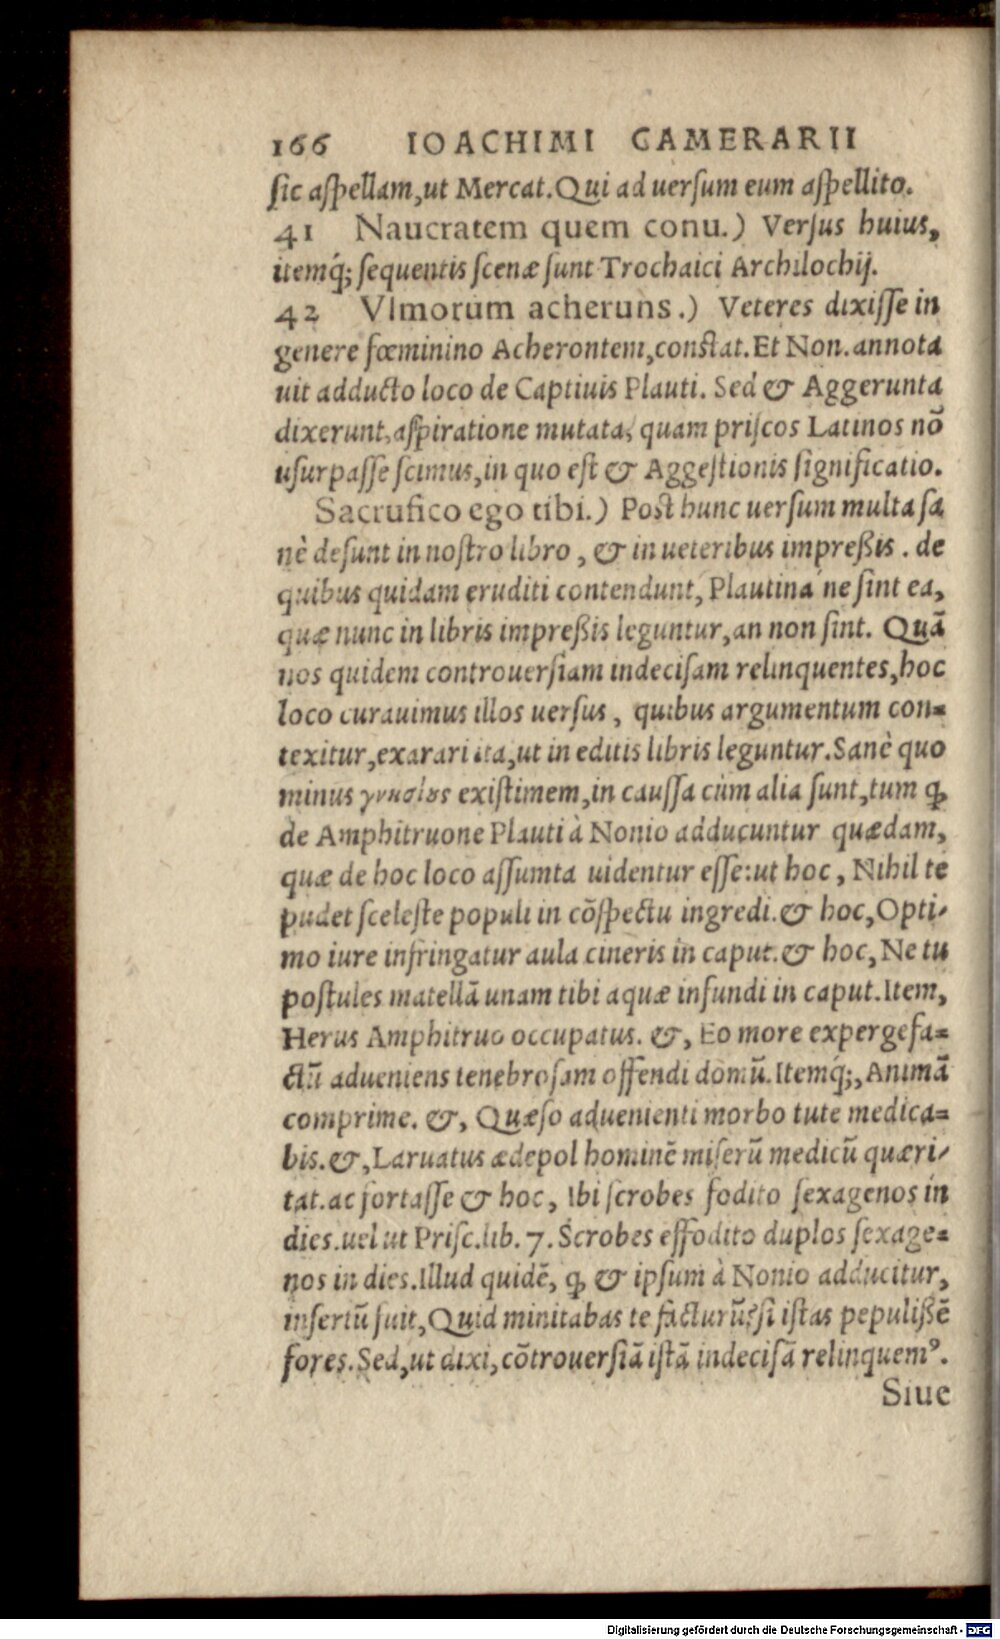 166 IOACHIMI CAMERARII
sic aspellam,ut Mercat.Qui ad uersum eum aspellito.
41 Naucratem quem conu.) Versus huius,
itemq́; sequentis scenæ sunt Trochaici Archilochij.
42 Vlmorum acheruns.) Veteres dixisse in
genere fœminino Acherontem,constat.Et Non.annota
uit adducto loco de Captiuis Plauti. Sed & Aggerunta
dixerunt,aspiratione mutata, quam priscos Latinos nō
usurpasse scimus,in quo est & Aggestionis significatio.
Sacrufico ego tibi.) Post hunc uersum multa sa
nè desunt in nostro libro, & in ueteribus impreßis. de
quibus quidam eruditi contendunt, Plautina ne sint ea,
quæ nunc in libris impreßis leguntur,an non sint. Quā
nos quidem controuersiam indecisam relinquentes,hoc
loco curauimus illos uersus, quibus argumentum con=
texitur,exarari ita,ut in editis libris leguntur.Sanè quo
minus γνησίους existimem,in caussa cùm alia sunt,tum ꝙ
de Amphitruone Plauti à Nonio adducuntur quædam,
quæ de hoc loco assumta uidentur esse:ut hoc, Nihil te
pudet sceleste populi in cōspectu ingredi.& hoc,Opti-
mo iure infringatur aula cineris in caput.& hoc, Ne tu
postules matellā unam tibi aquæ infundi in caput.Item,
Herus Amphitruo occupatus. &, Eo more expergefa=
ctū adueniens tenebrosam offendi domū.Itemq́;,Animā
comprime. &, Quæso aduenienti morbo tute medica=
bis.&,Laruatus ædepol hominē miserū medicū quæri-
tat.ac fortasse & hoc, Ibi scrobes fodito sexagenos in
dies.uel ut Prisc.lib. 7. Scrobes effodito duplos sexage=
nos in dies.Illud quidē, ꝙ & ipsum à Nonio adducitur,
insertū fuit,Quid minitabas te facturū,si istas pepulißē
fores.Sed,ut dixi,cōtrouersiā istā indecisā relinquemꝰ.
Siue
Digitalisierung gefördert durch die Deutsche Forschungsgemeinschaft - DFG